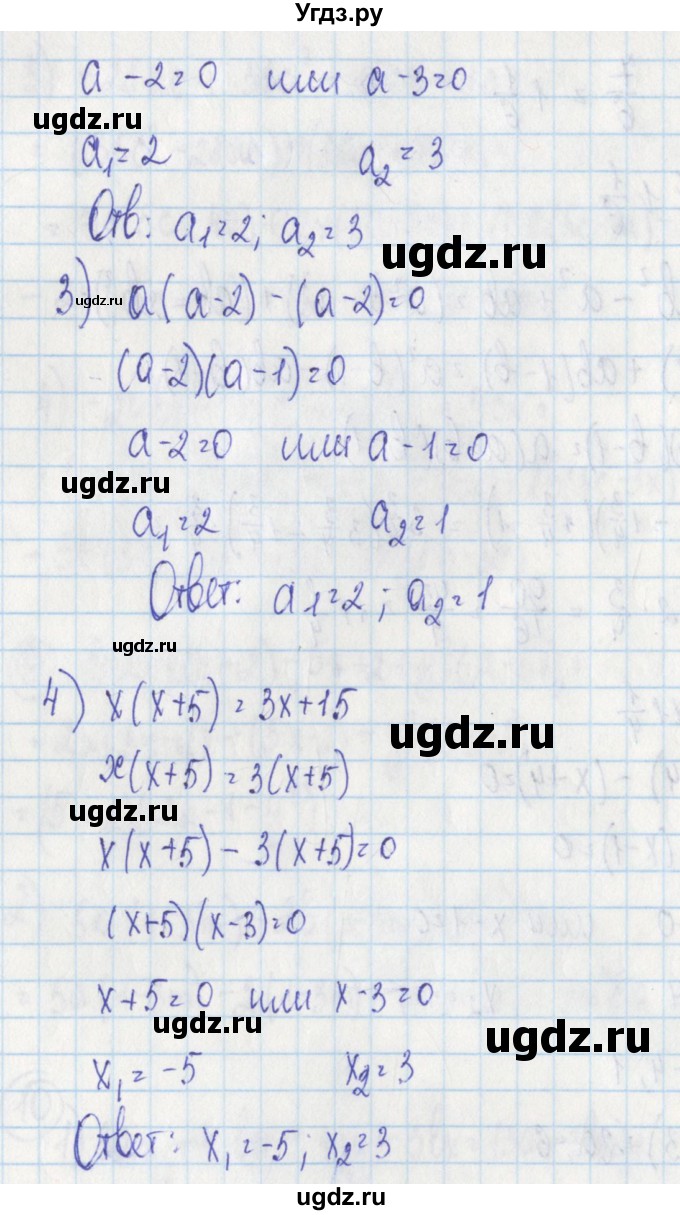 Угдз.ру
a - 2 = 0 или a - 3 = 0
ugdz.ru
a₁ = 2 a₂ = 3
Отв: a₁ = 2; a₂ = 3
ugdz.ru
3) ugdz.ru a(a-2) - (a-2) = 0
(a-2)(a-1) = 0
a - 2 = 0 или a - 1 = 0
ugdz.ru
a₁ = 2 a₂ = 1
Ответ: a₁ = 2; a₂ = 1
ugdz.ru
4) x(x+5) = 3x+15
ugdz.ru
x(x+5) = 3(x+5)
ugdz.ru
x(x+5) - 3(x+5) = 0
(x+5)(x-3) = 0
x+5 = 0 или x-3 = 0
ugdz.ru
ugdz.ru
x₁ = -5 x₂ = 3
Ответ: x₁ = -5; x₂ = 3
ugdz.ru